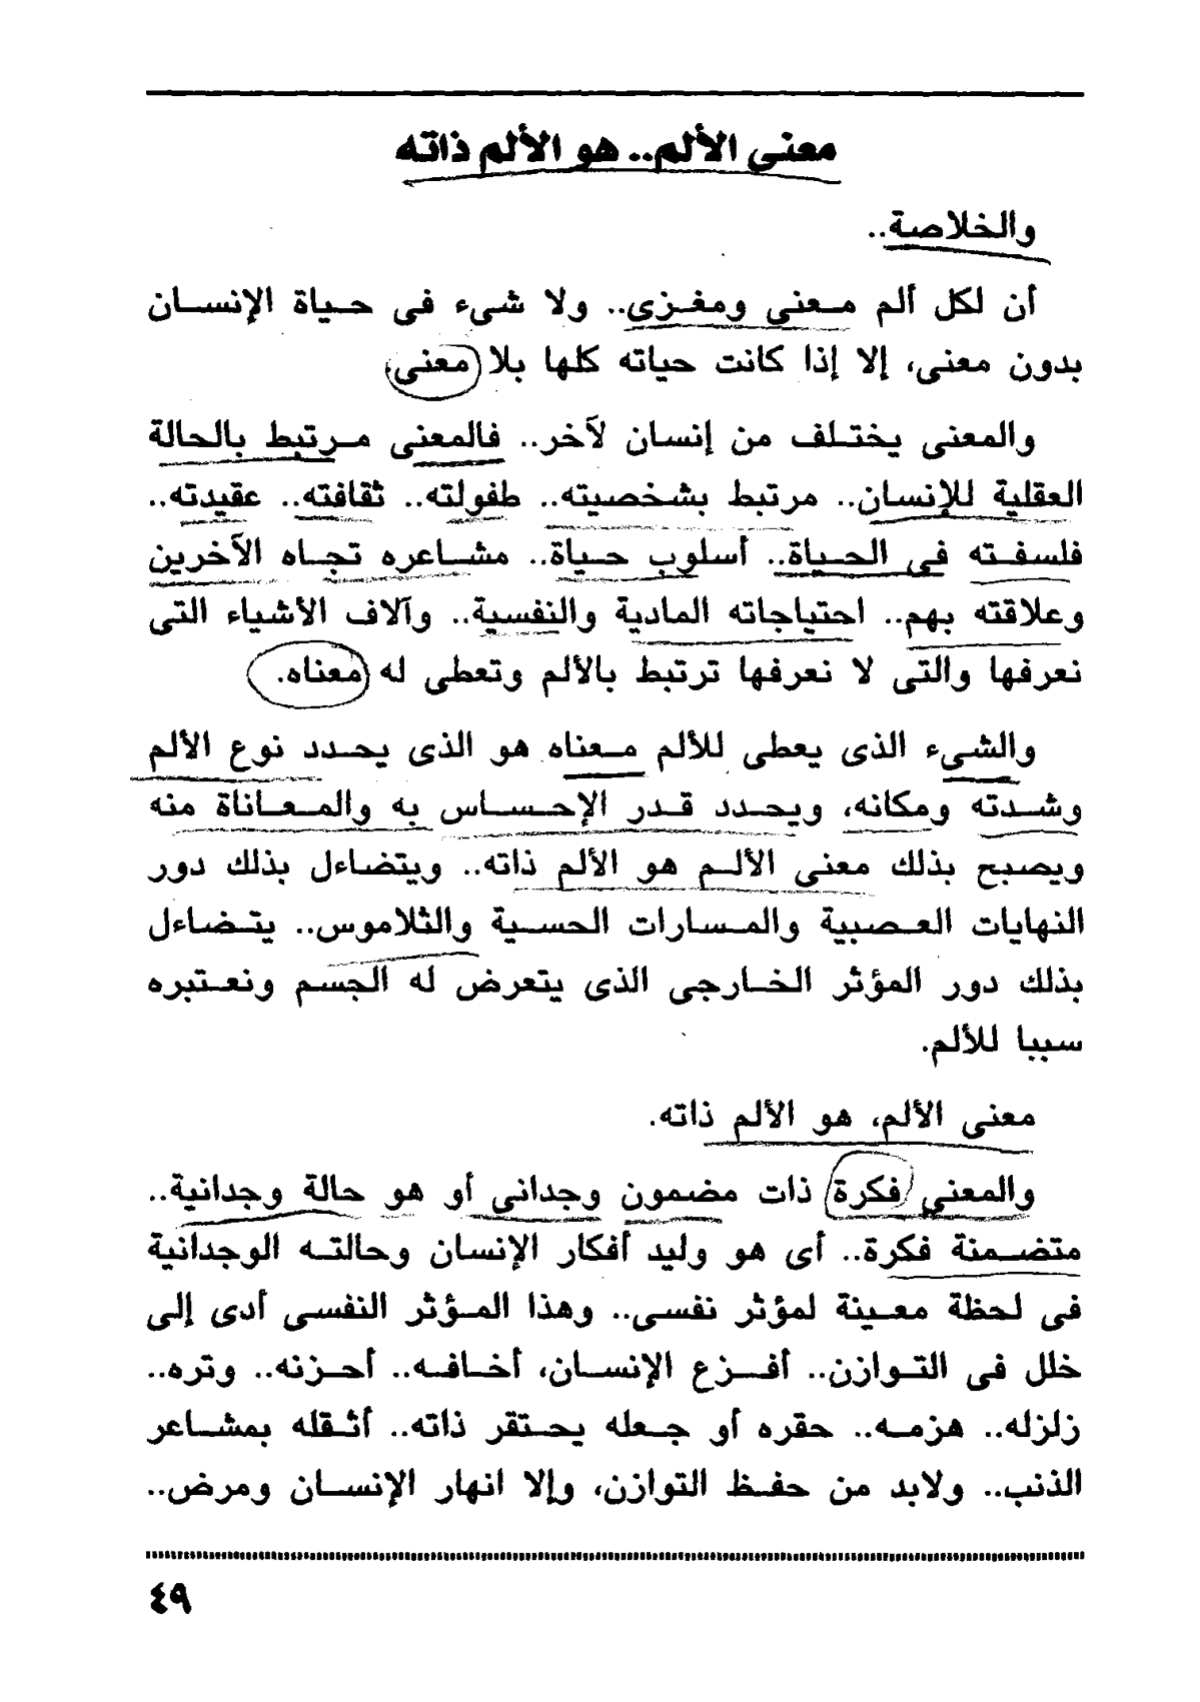 معنى الألم.. هو الألم ذاته
والخلاصة..
أن لكل ألم معنى ومغزى.. ولا شىء فى حياة الإنسان
بدون معنى، إلا إذا كانت حياته كلها بلا معنى.
والمعنى يختلف من إنسان لآخر.. فالمعنى مرتبط بالحالة
العقلية للإنسان.. مرتبط بشخصيته.. طفولته.. ثقافته.. عقيدته..
فلسفته فى الحياة.. أسلوب حياة.. مشاعره تجاه الآخرين
وعلاقته بهم.. احتياجاته المادية والنفسية.. وآلاف الأشياء التى
نعرفها والتى لا نعرفها ترتبط بالألم وتعطى له معناه.
والشىء الذى يعطى للألم معناه هو الذى يحدد نوع الألم
وشدته ومكانه، ويحدد قدر الإحساس به والمعاناة منه
ويصبح بذلك معنى الألم هو الألم ذاته.. ويتضاءل بذلك دور
النهايات العصبية والمسارات الحسية والثلاموس.. يتضاءل
بذلك دور المؤثر الخارجى الذى يتعرض له الجسم ونعتبره
سببا للألم.
معنى الألم، هو الألم ذاته.
والمعنى فكرة ذات مضمون وجدانى أو هو حالة وجدانية..
متضمنة فكرة.. أى هو وليد أفكار الإنسان وحالته الوجدانية
فى لحظة معينة لمؤثر نفسى.. وهذا المؤثر النفسى أدى إلى
خلل فى التوازن.. أفزع الإنسان، أخافه.. أحزنه.. وتره..
زلزله.. هزمه.. حقره أو جعله يحتقر ذاته.. أثقله بمشاعر
الذنب.. ولابد من حفظ التوازن، وإلا انهار الإنسان ومرض..
٤٩